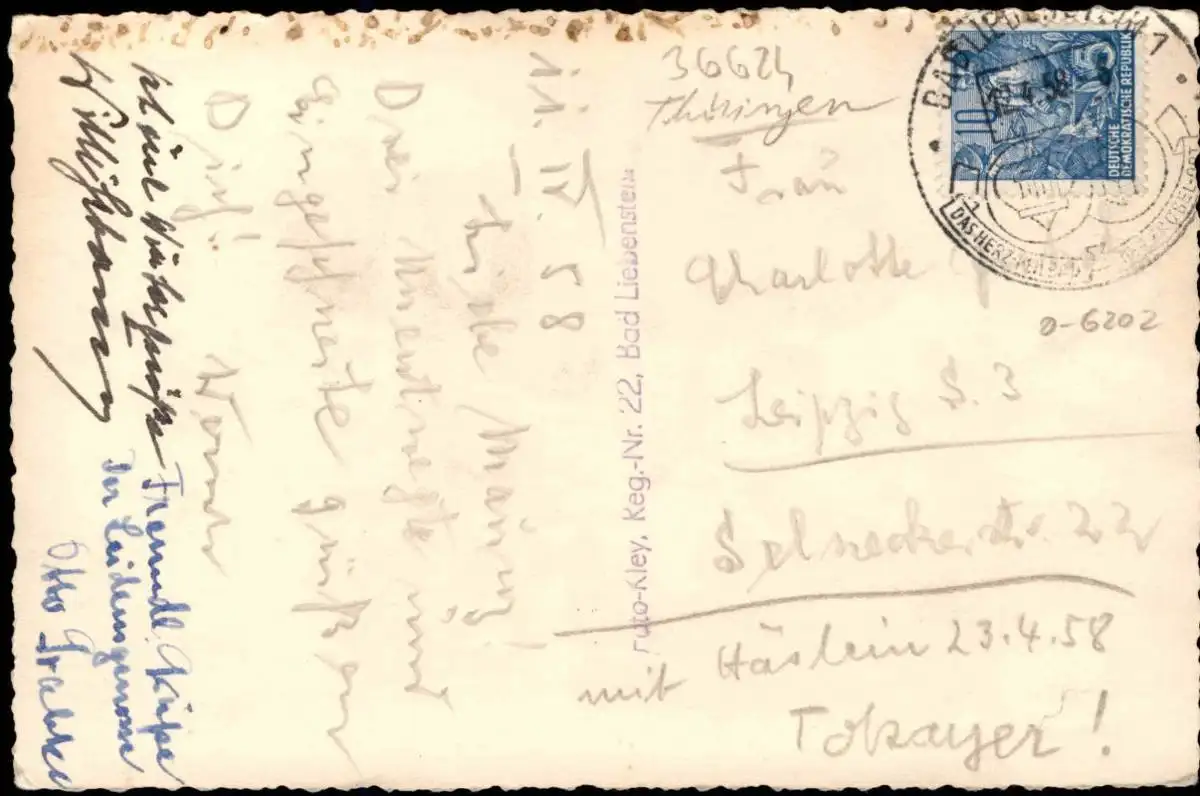 11. IV. 58
Liebe Mäusi!
Drei Unentwegte und
Eingeschneite grüßen
Dich!
Werner
Freundl. Grüße
Der Leidensgenosse
Otto
Foto-Kley, Reg.-Nr. 22, Bad Liebenstein
36624
Thüringen
Frau
Charlotte
Leipzig S. 3
Selneckerstr. 22
mit Häslein 23.4.58
Tokayer!
0-6202
BAD LIEBENSTEIN 1
.4.58
DAS HERZ
10
5
DEUTSCHE
DEMOKRATISCHE REPUBLIK